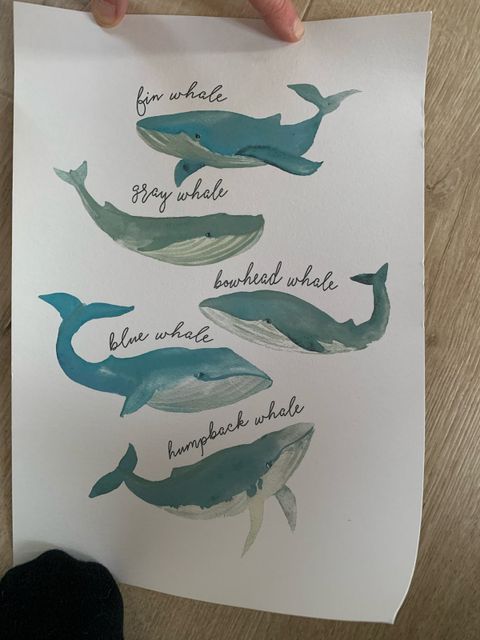 fin whale
gray whale
bowhead whale
blue whale
humpback whale